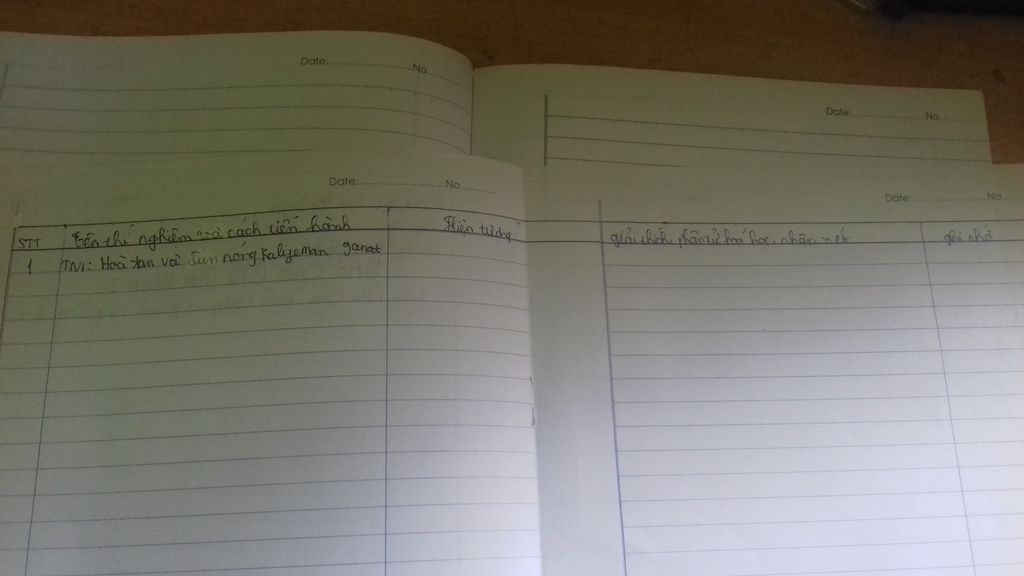 Date: No
Date: No
Date: No
Date: No
STT Tên thí nghiệm và cách tiến hành Hiện tượng giải thích phân tử hoá học, nhận xét ghi nhớ
1 TN1: Hoà tan và đun nóng Kalipeman ganat